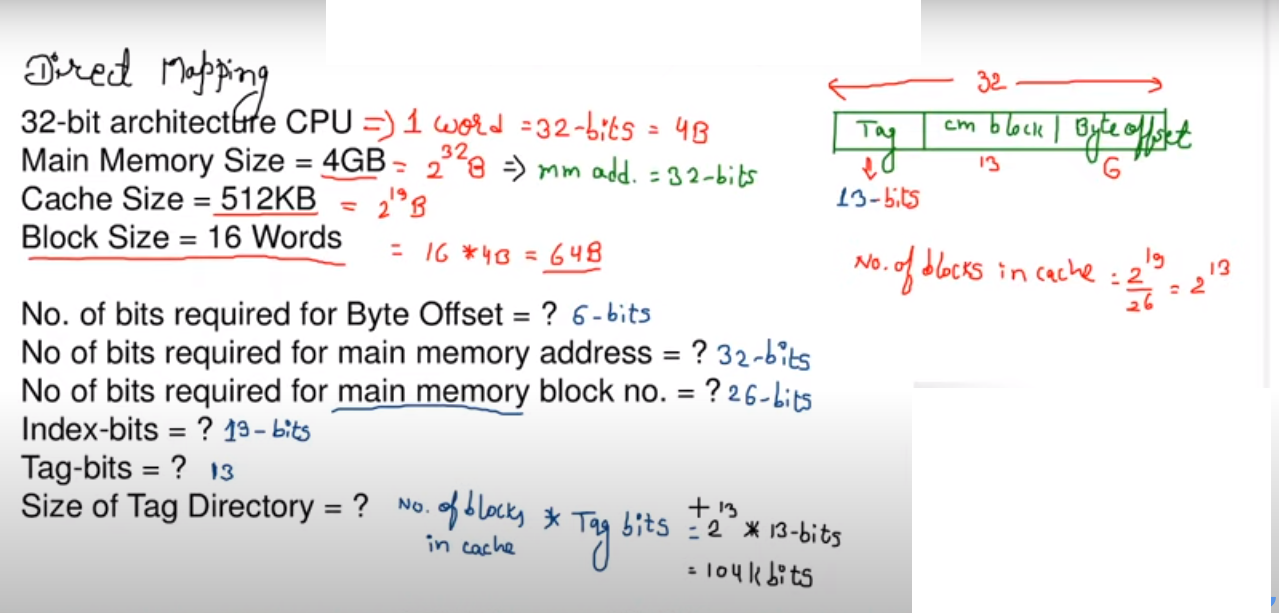 Direct Mapping
32-bit architecture CPU => 1 word = 32-bits = 4B
Main Memory Size = 4GB = 2^32 B => mm add. = 32-bits
Cache Size = 512KB = 2^19 B
Block Size = 16 Words = 16 * 4B = 64B
No. of bits required for Byte Offset = ? 6-bits
No of bits required for main memory address = ? 32-bits
No of bits required for main memory block no. = ? 26-bits
Index-bits = ? 13-bits
Tag-bits = ? 13
Size of Tag Directory = ? No. of blocks in cache * Tag bits
+
= 2^13 * 13-bits
= 104k bits
32
Tag | cm block | Byte offset
13 6
13-bits
No. of blocks in cache = 2^19 / 26 = 2^13